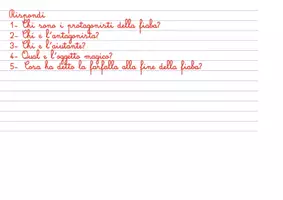 Rispondi
1- Chi sono i protagonisti della fiaba?
2- Chi e l'antagonista?
3- Chi e l'aiutante?
4- Qual e l'oggetto magico?
5- Cosa ha detto la farfalla alla fine della fiaba?